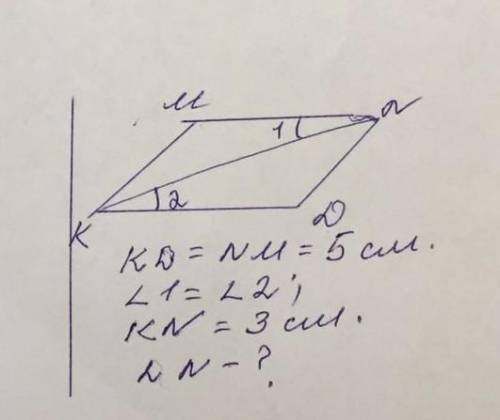 M
N
1
2
K
D
KD = NM = 5 см.
∠1 = ∠2;
KN = 3 см.
DN - ?